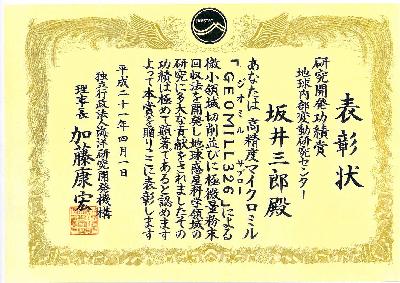 表彰状
研究開発功績賞
地球内部変動研究センター
坂井三郎殿
あなたは高精度マイクロミル
ジオミル サブロー
「GEOMILL326」による
微小領域切削並びに極微量粉末
回収法を開発し地球惑星科学領域の
研究に多大な貢献をされましたその
功績は極めて顕著であると認めます
よって本賞を贈りここに表彰します
平成二十一年四月一日
独立行政法人海洋研究開発機構
理事長 加藤康宏